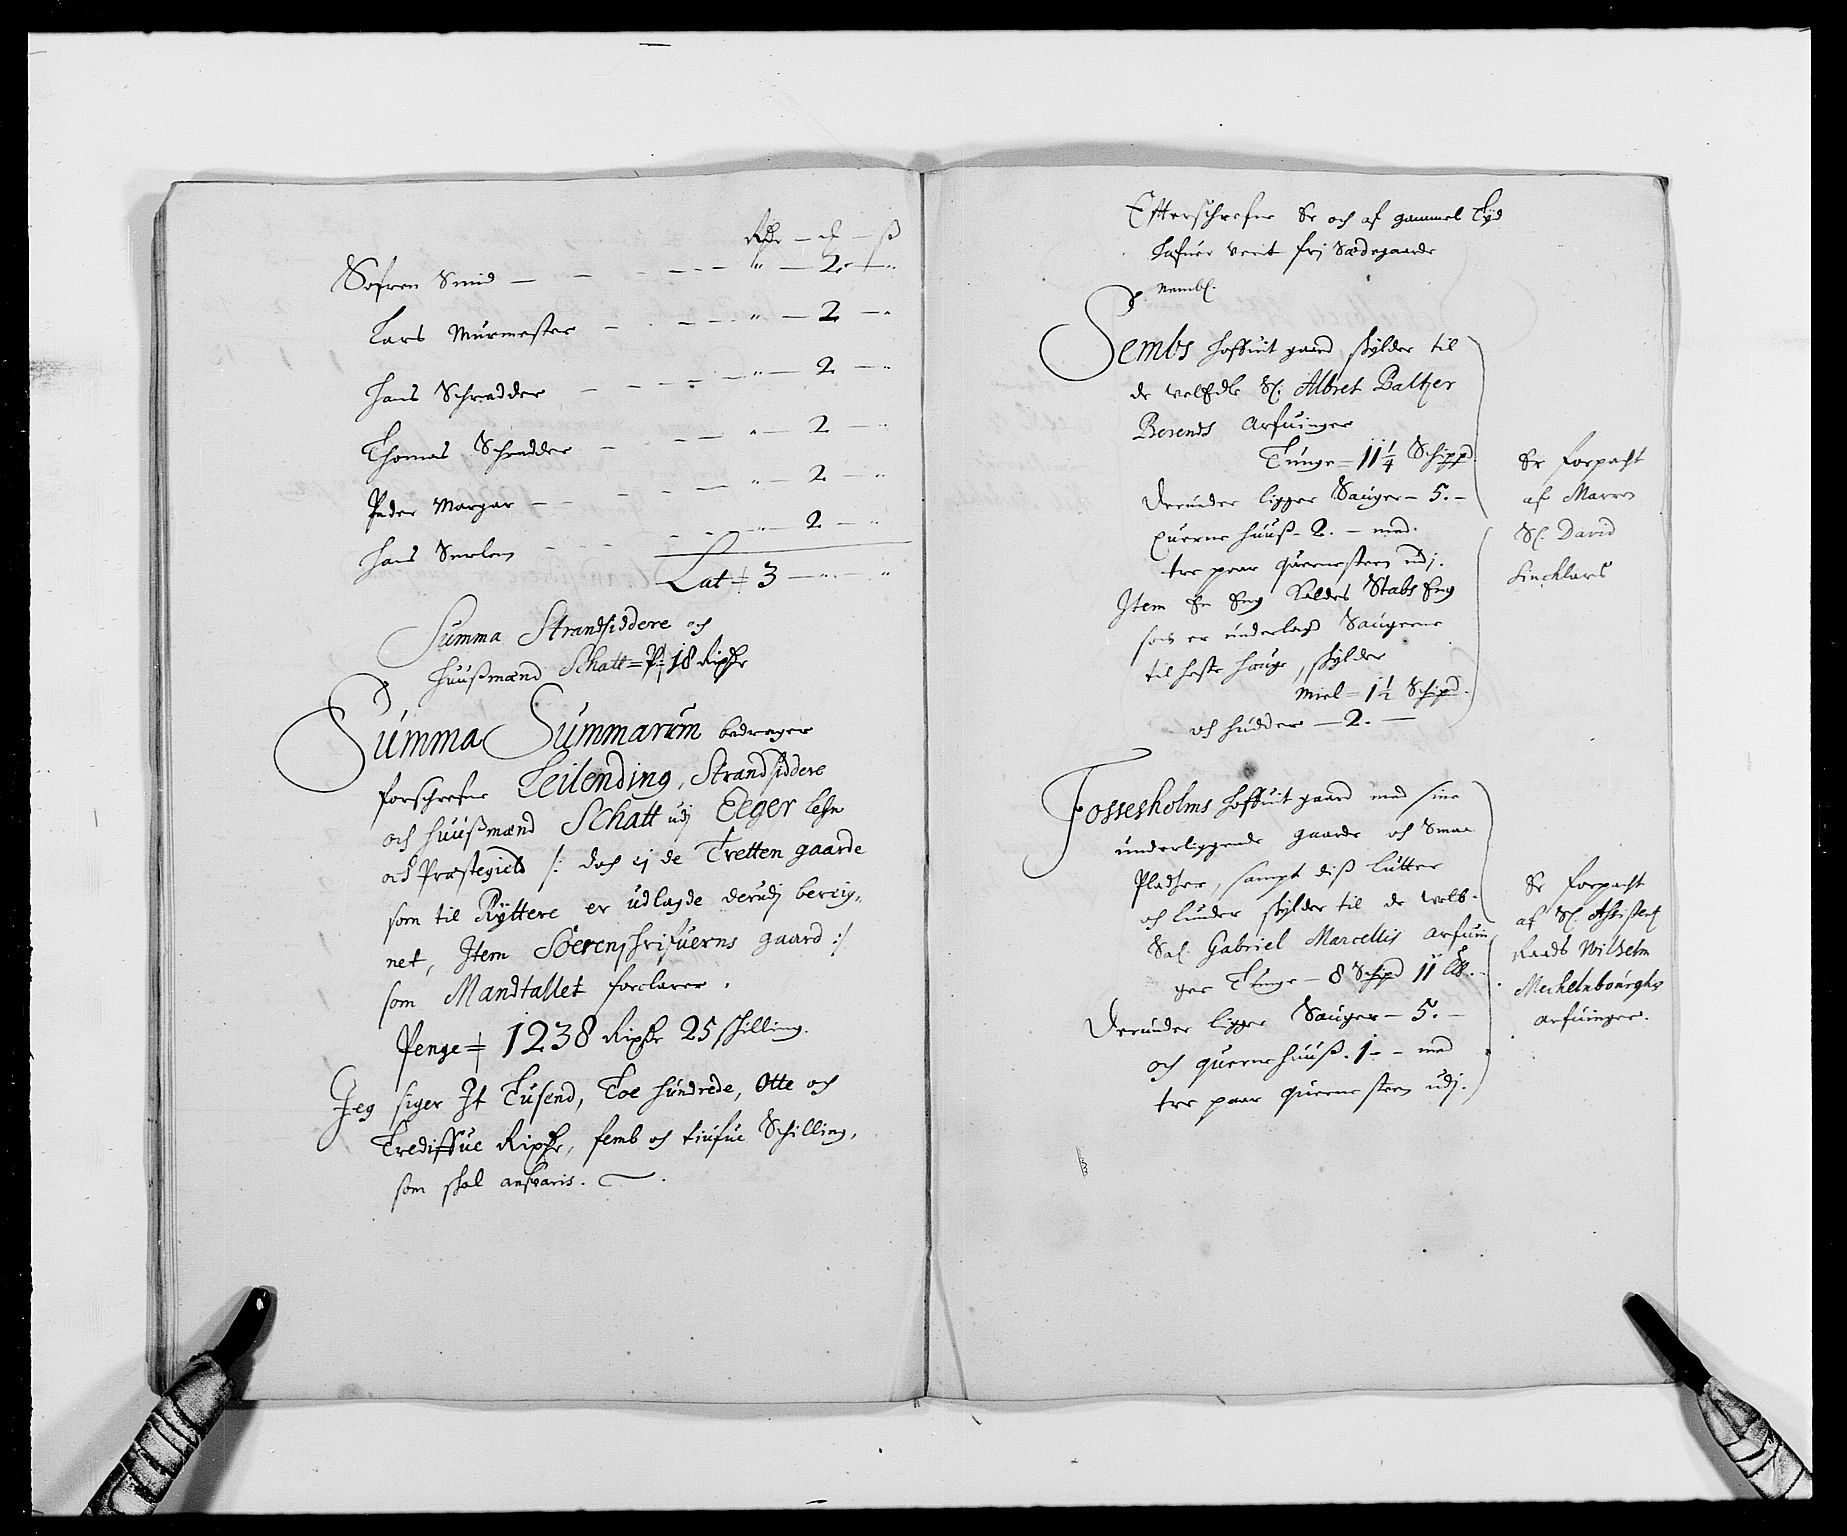 Rdr — ort — ß
Sofren Smid — — — — — " — 2 — "
Lars Murmester — — — — " — 2 — "
Hans Schredder — — — — " — 2 — "
Thomas Schredder — — — " — 2 — "
Peder Morgar — — — — " — 2 — "
Hans — — — — " — 2 — "
Lat ≠ 3 — " — "
Summa Strandsiddere och
Huußmænd Schatt = P: 18 Rixdr
Summa Summarum bedrager
forschrefne Leilending, Strandsiddere
och Huußmænd Schatt udj Eeger Lehn
och Præstegield /: doch ej de Tretten gaarde
som til Ryttere er udlagde derudj bereig-
net, Item Sörenschrifuerns gaard :/
som Mandtallet forclarer.
Penge ≠ 1238 Rixdr 25 schilling.
Jeg siger It Tusend, Toe Hundrede, Otte och
Trediffue Rixdr, femb och tiufue Schilling,
som skal ansvaris.
Efterschrefne Er och af gammel Tid
hafuer verit frj Sædegaarde
Nembl.
Sembs Hoffuit gaard skylder til
de velEdle Sl: Albret Baltzer
Berends Arfuinger
Tunge = 11 1/4 Schippd
Derunder ligger Sauger — 5. —
querne huuß — 2. — med
tre paar quernesteen udj.
Item En Eng kaldes Stabs Eng
som er underlagd Saugerne
til heste houge, skylder
Miel = 1 1/2 Schipd.
och Hudder — 2. —
Er forpacht
af Maren
Sl. David
Sincklars
Fossesholms Hoffuit gaard med sine
underliggende gaarde och Smaa
Pladser, sampt diß lutter
och lunder skylder til de velb.
Sal. Gabriel Marcellis Arfuin
ger Tunge — 8 Schipd 11 L℔. —
Derunder ligger Sauger — 5. —
och quernehuuß. 1. — med
tre paar quernesteen udj.
Er forpacht
af Sl.
Raads Wilhelm
Mechelnbourghs
Arfuinger.